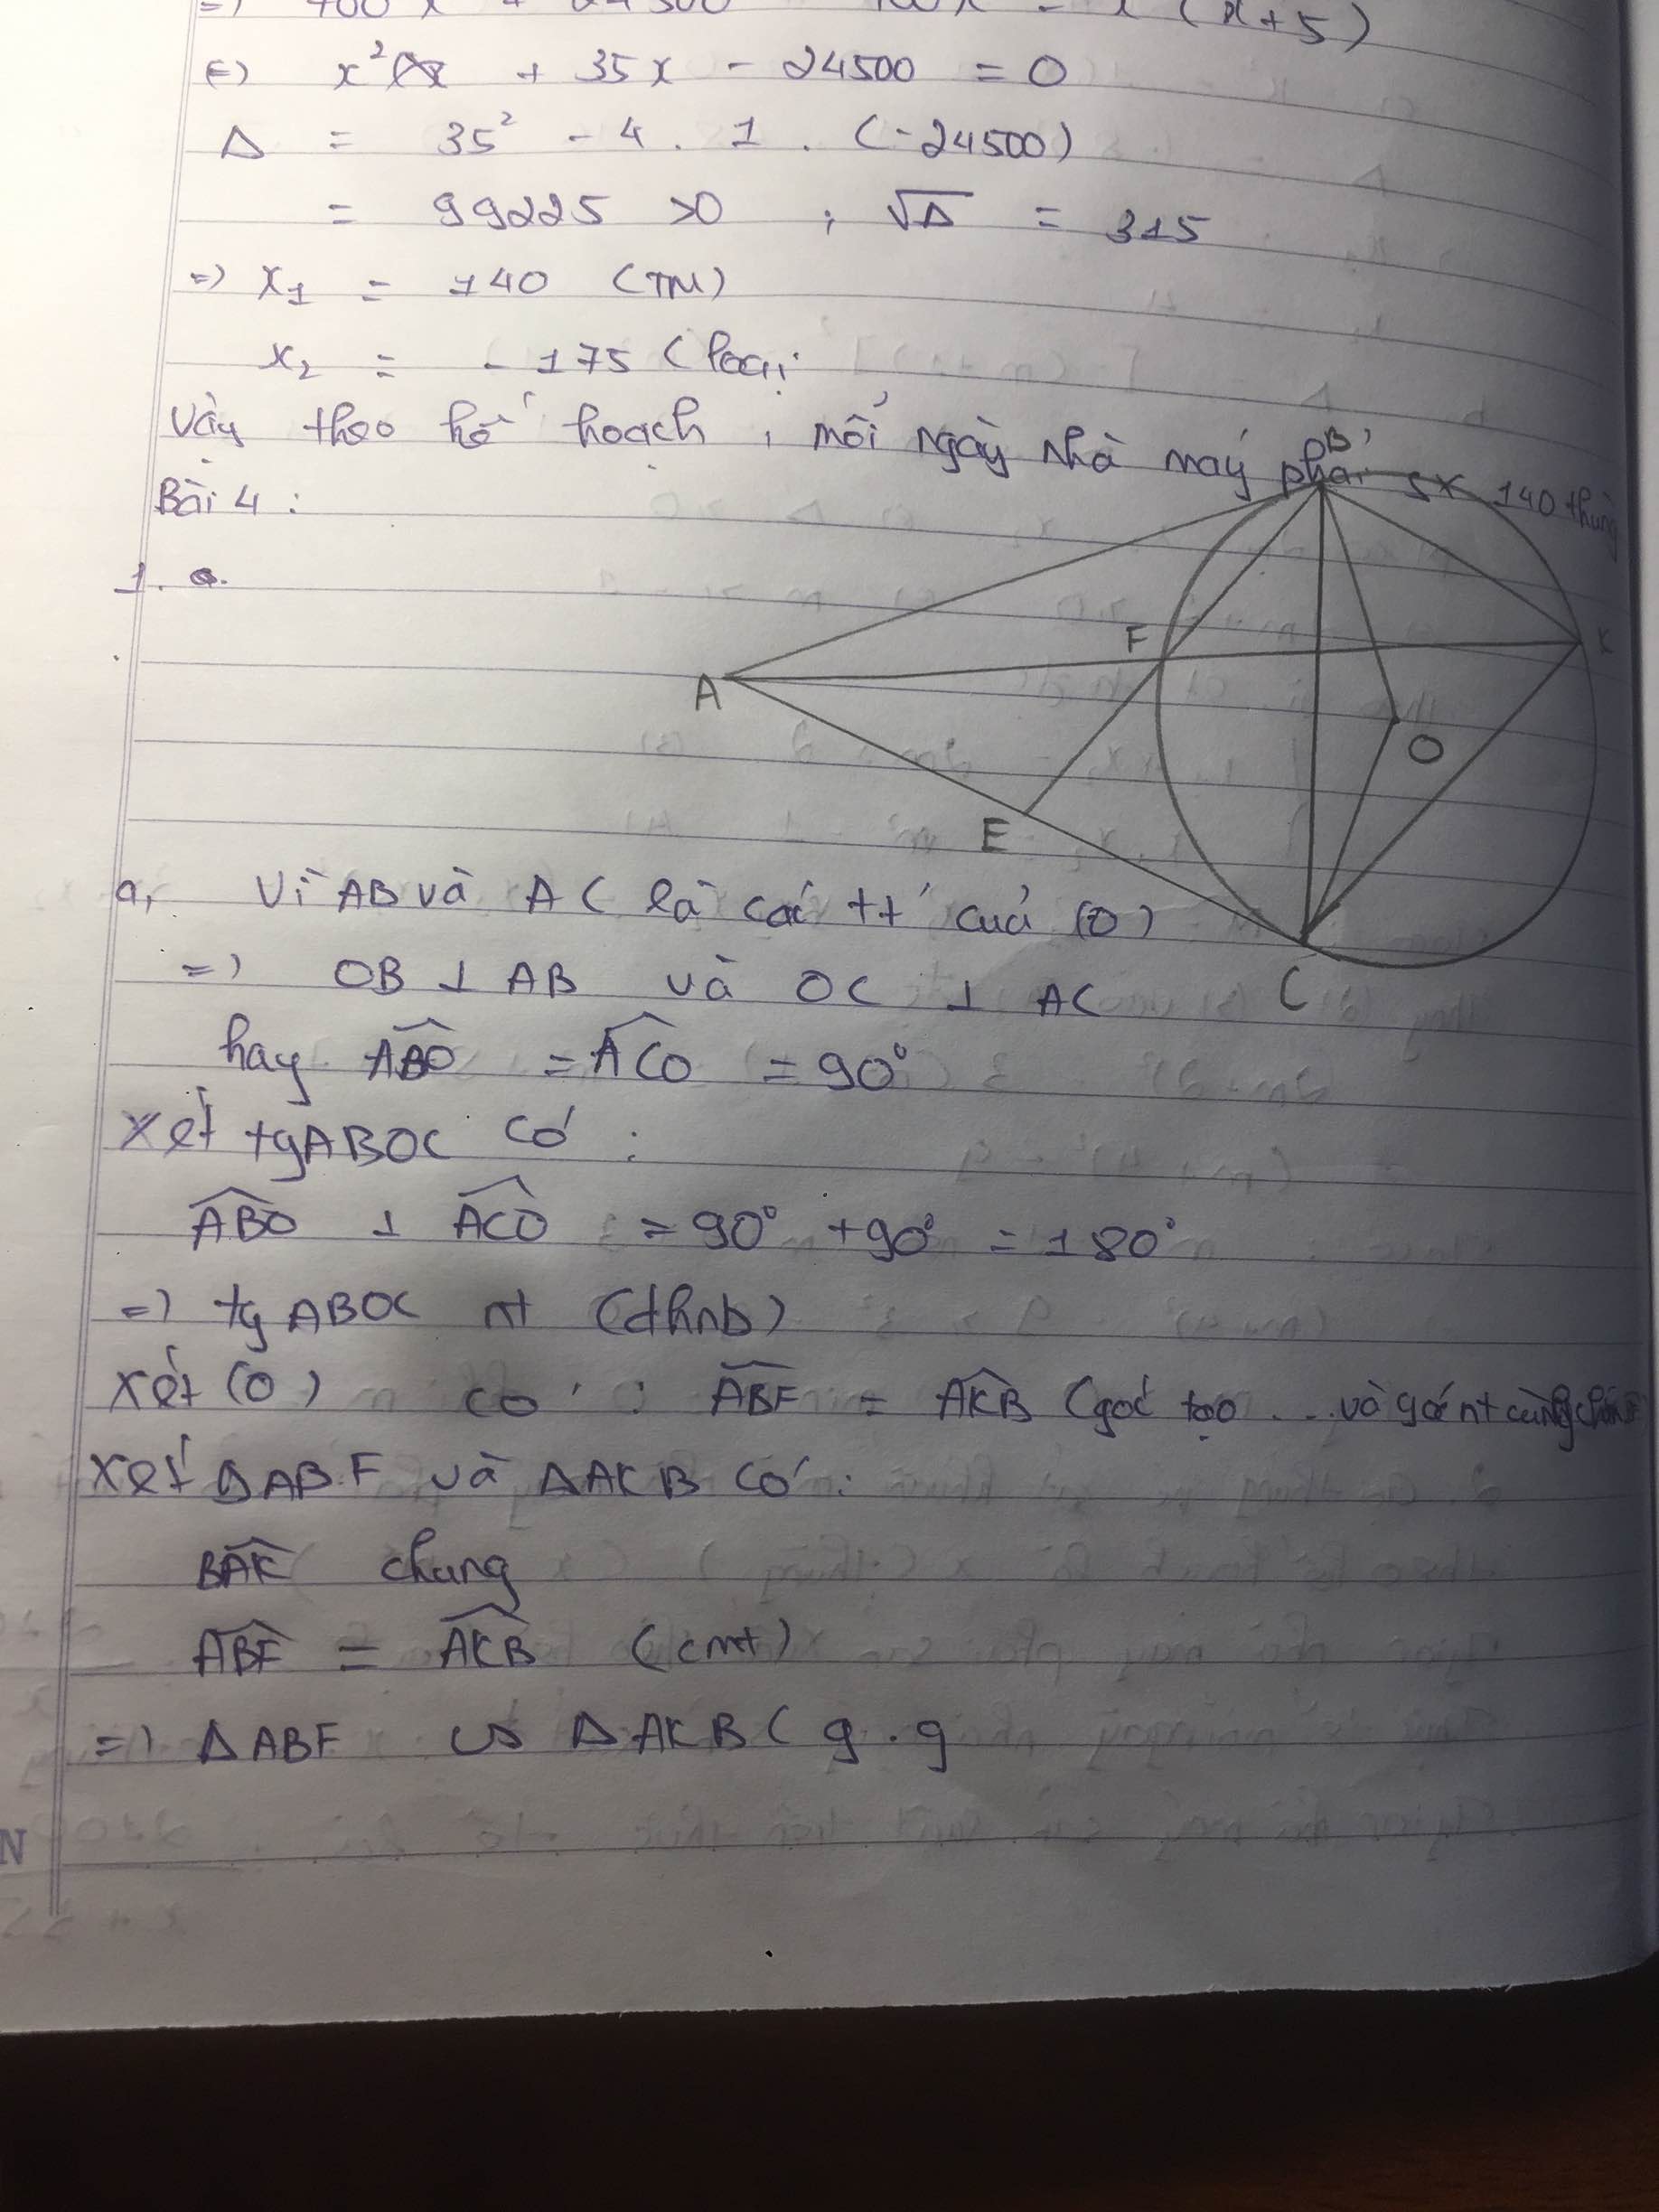 =) 700x + 24500 - 700x = x(x+5)
(=) x² + 35x - 24500 = 0
Δ = 35² - 4 . 1 . (-24500)
= 99225 >0 ; √Δ = 315
=) x₁ = 140 (TM)
x₂ = - 175 (loại
Vậy theo kế hoạch , mỗi ngày nhà máy phải sx 140 thùng
Bài 4 :
1.
B
F
K
A
O
E
C
a, Vì AB và AC là các tt của (O)
=) OB ⊥ AB và OC ⊥ AC
hay ABO = ACO = 90°
Xét tgABOC có :
ABO ⊥ ACO = 90° +90° = 180°
=) tg ABOC nt (dhnb)
Xét (O) có : ABF = AKB (góc tạo ... và góc nt cùng chắn
Xét ΔABF và ΔAKB có :
BAK chung
ABF = AKB (cmt)
=) ΔABF ∽ ΔAKB ( g . g
N